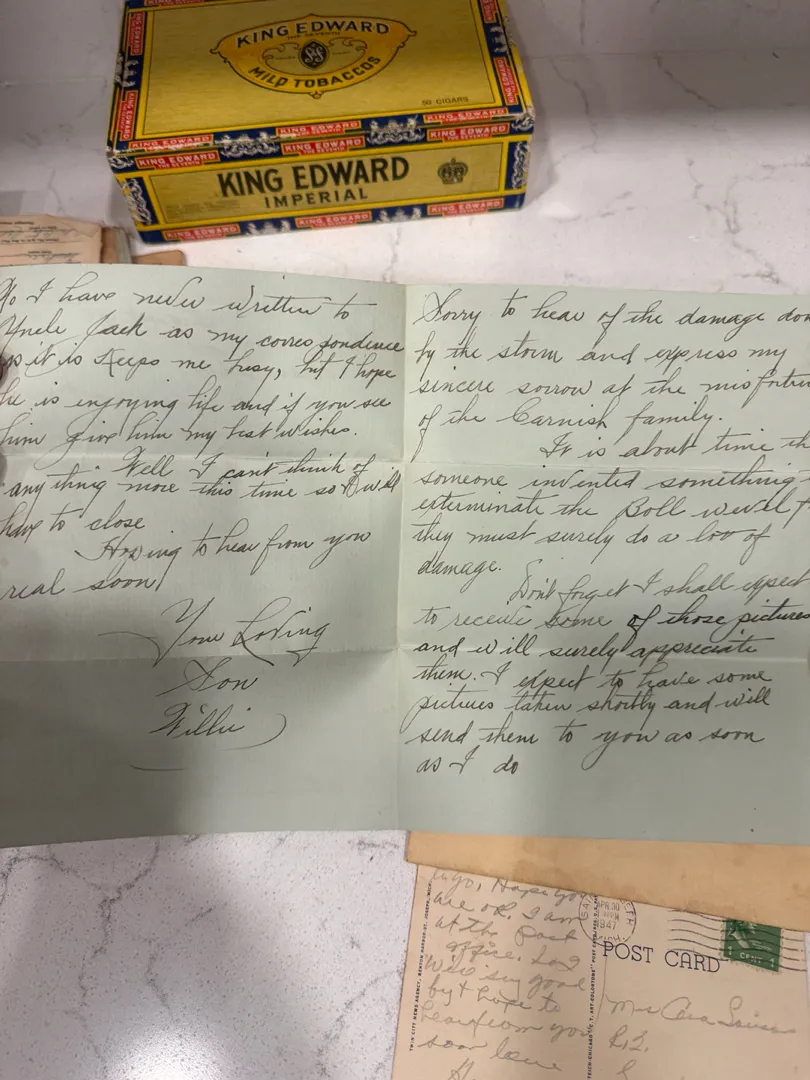 KING EDWARD
THE SEVENTH
MILD TOBACCOS
50 CIGARS
KING EDWARD
IMPERIAL
No I have never written to
Uncle Jack as my correspondence
as it is keeps me busy, but I hope
he is enjoying life and if you see
him give him my best wishes.
Well I can't think of
any thing more this time so I will
have to close
Hoping to hear from you
real soon
Your Loving
Son
Willie
Sorry to hear of the damage don
by the storm and express my
sincere sorrow at the misfortun
of the Carnish family.
It is about time th
someone invented something
exterminate the Boll wevel f
they must surely do a lot of
damage.
Don't forget I shall expect
to receive some of those pictures
and will surely appreciate
them. I expect to have some
pictures taken shortly and will
send them to you as soon
as I do
Hope you
are ok. I am
at the post
office. So I
will say good
by & hope to
hear from you
soon love
APR 30
1947
POST CARD
1 CENT 1
Mrs
R.2.